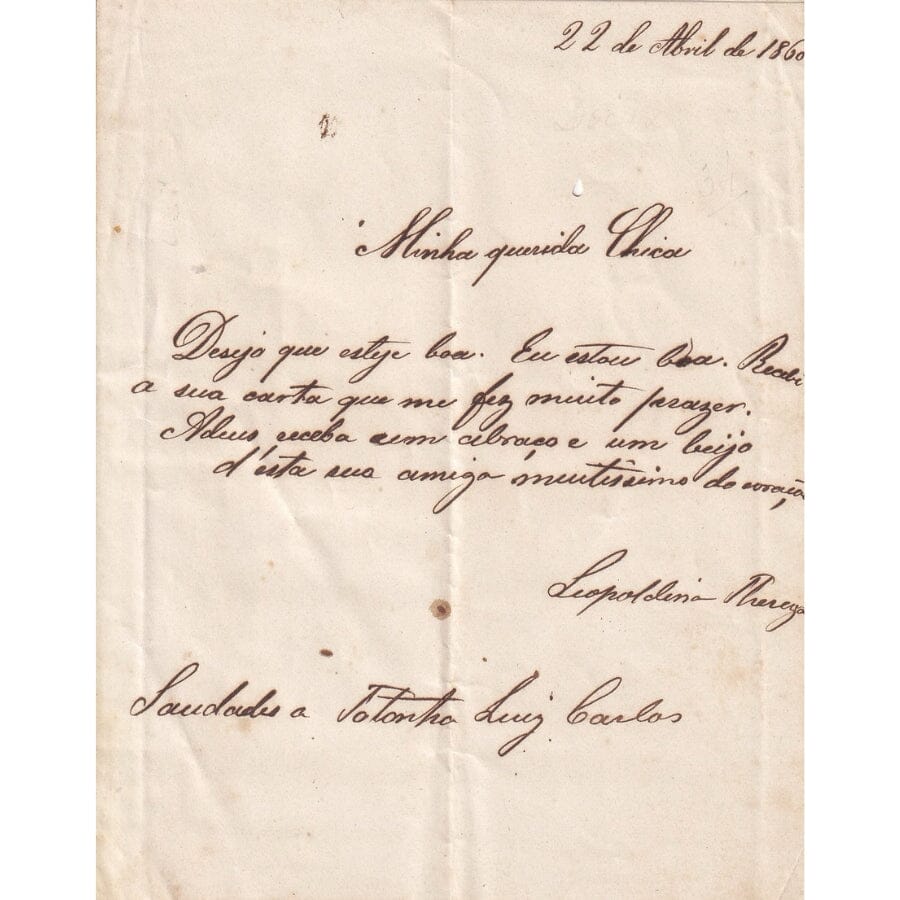 22 de Abril de 1860
Minha querida Chica
Desejo que esteje boa. Eu estou boa. Recebi
a sua carta que me fez muito prazer.
Adeus, receba um abraço e um beijo
d'ésta sua amiga muitissimo do coração,
Leopoldina Thereza
Saudades a Totonha Luiz Carlos